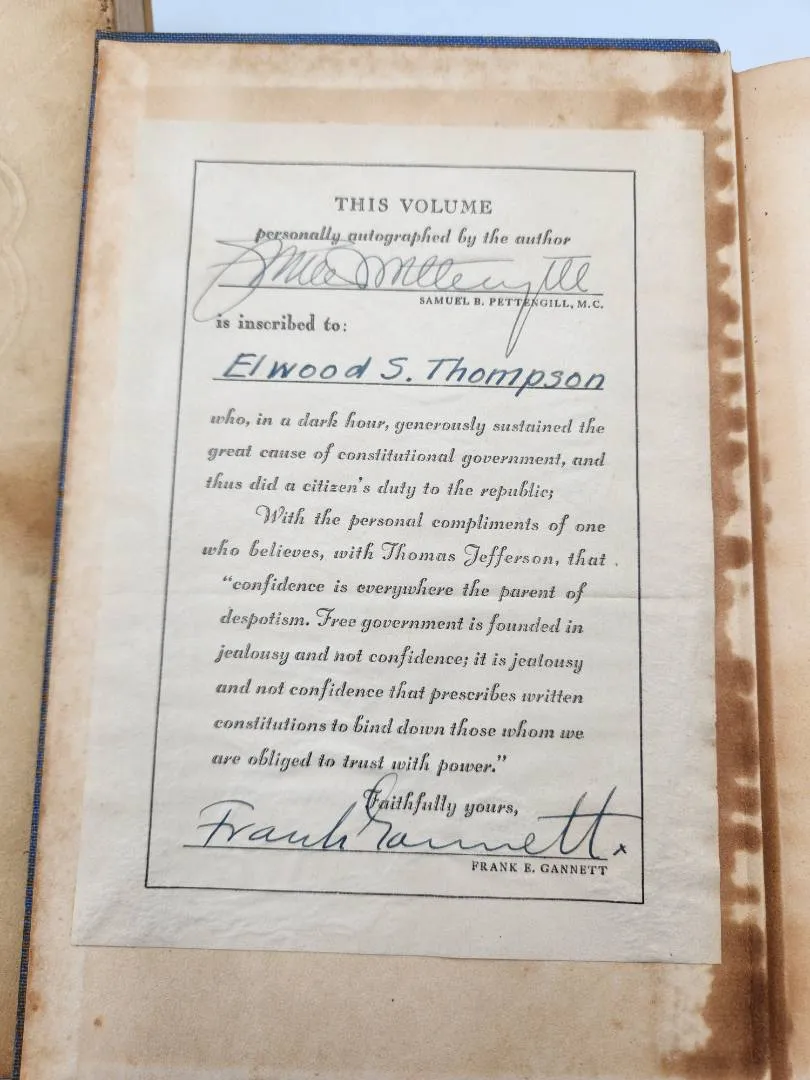 THIS VOLUME
personally autographed by the author
Samuel Pettengill
SAMUEL B. PETTENGILL, M.C.
is inscribed to:
Elwood S. Thompson
who, in a dark hour, generously sustained the
great cause of constitutional government, and
thus did a citizen's duty to the republic;
With the personal compliments of one
who believes, with Thomas Jefferson, that
"confidence is everywhere the parent of
despotism. Free government is founded in
jealousy and not confidence; it is jealousy
and not confidence that prescribes written
constitutions to bind down those whom we
are obliged to trust with power."
Faithfully yours,
Frank Gannett
FRANK E. GANNETT